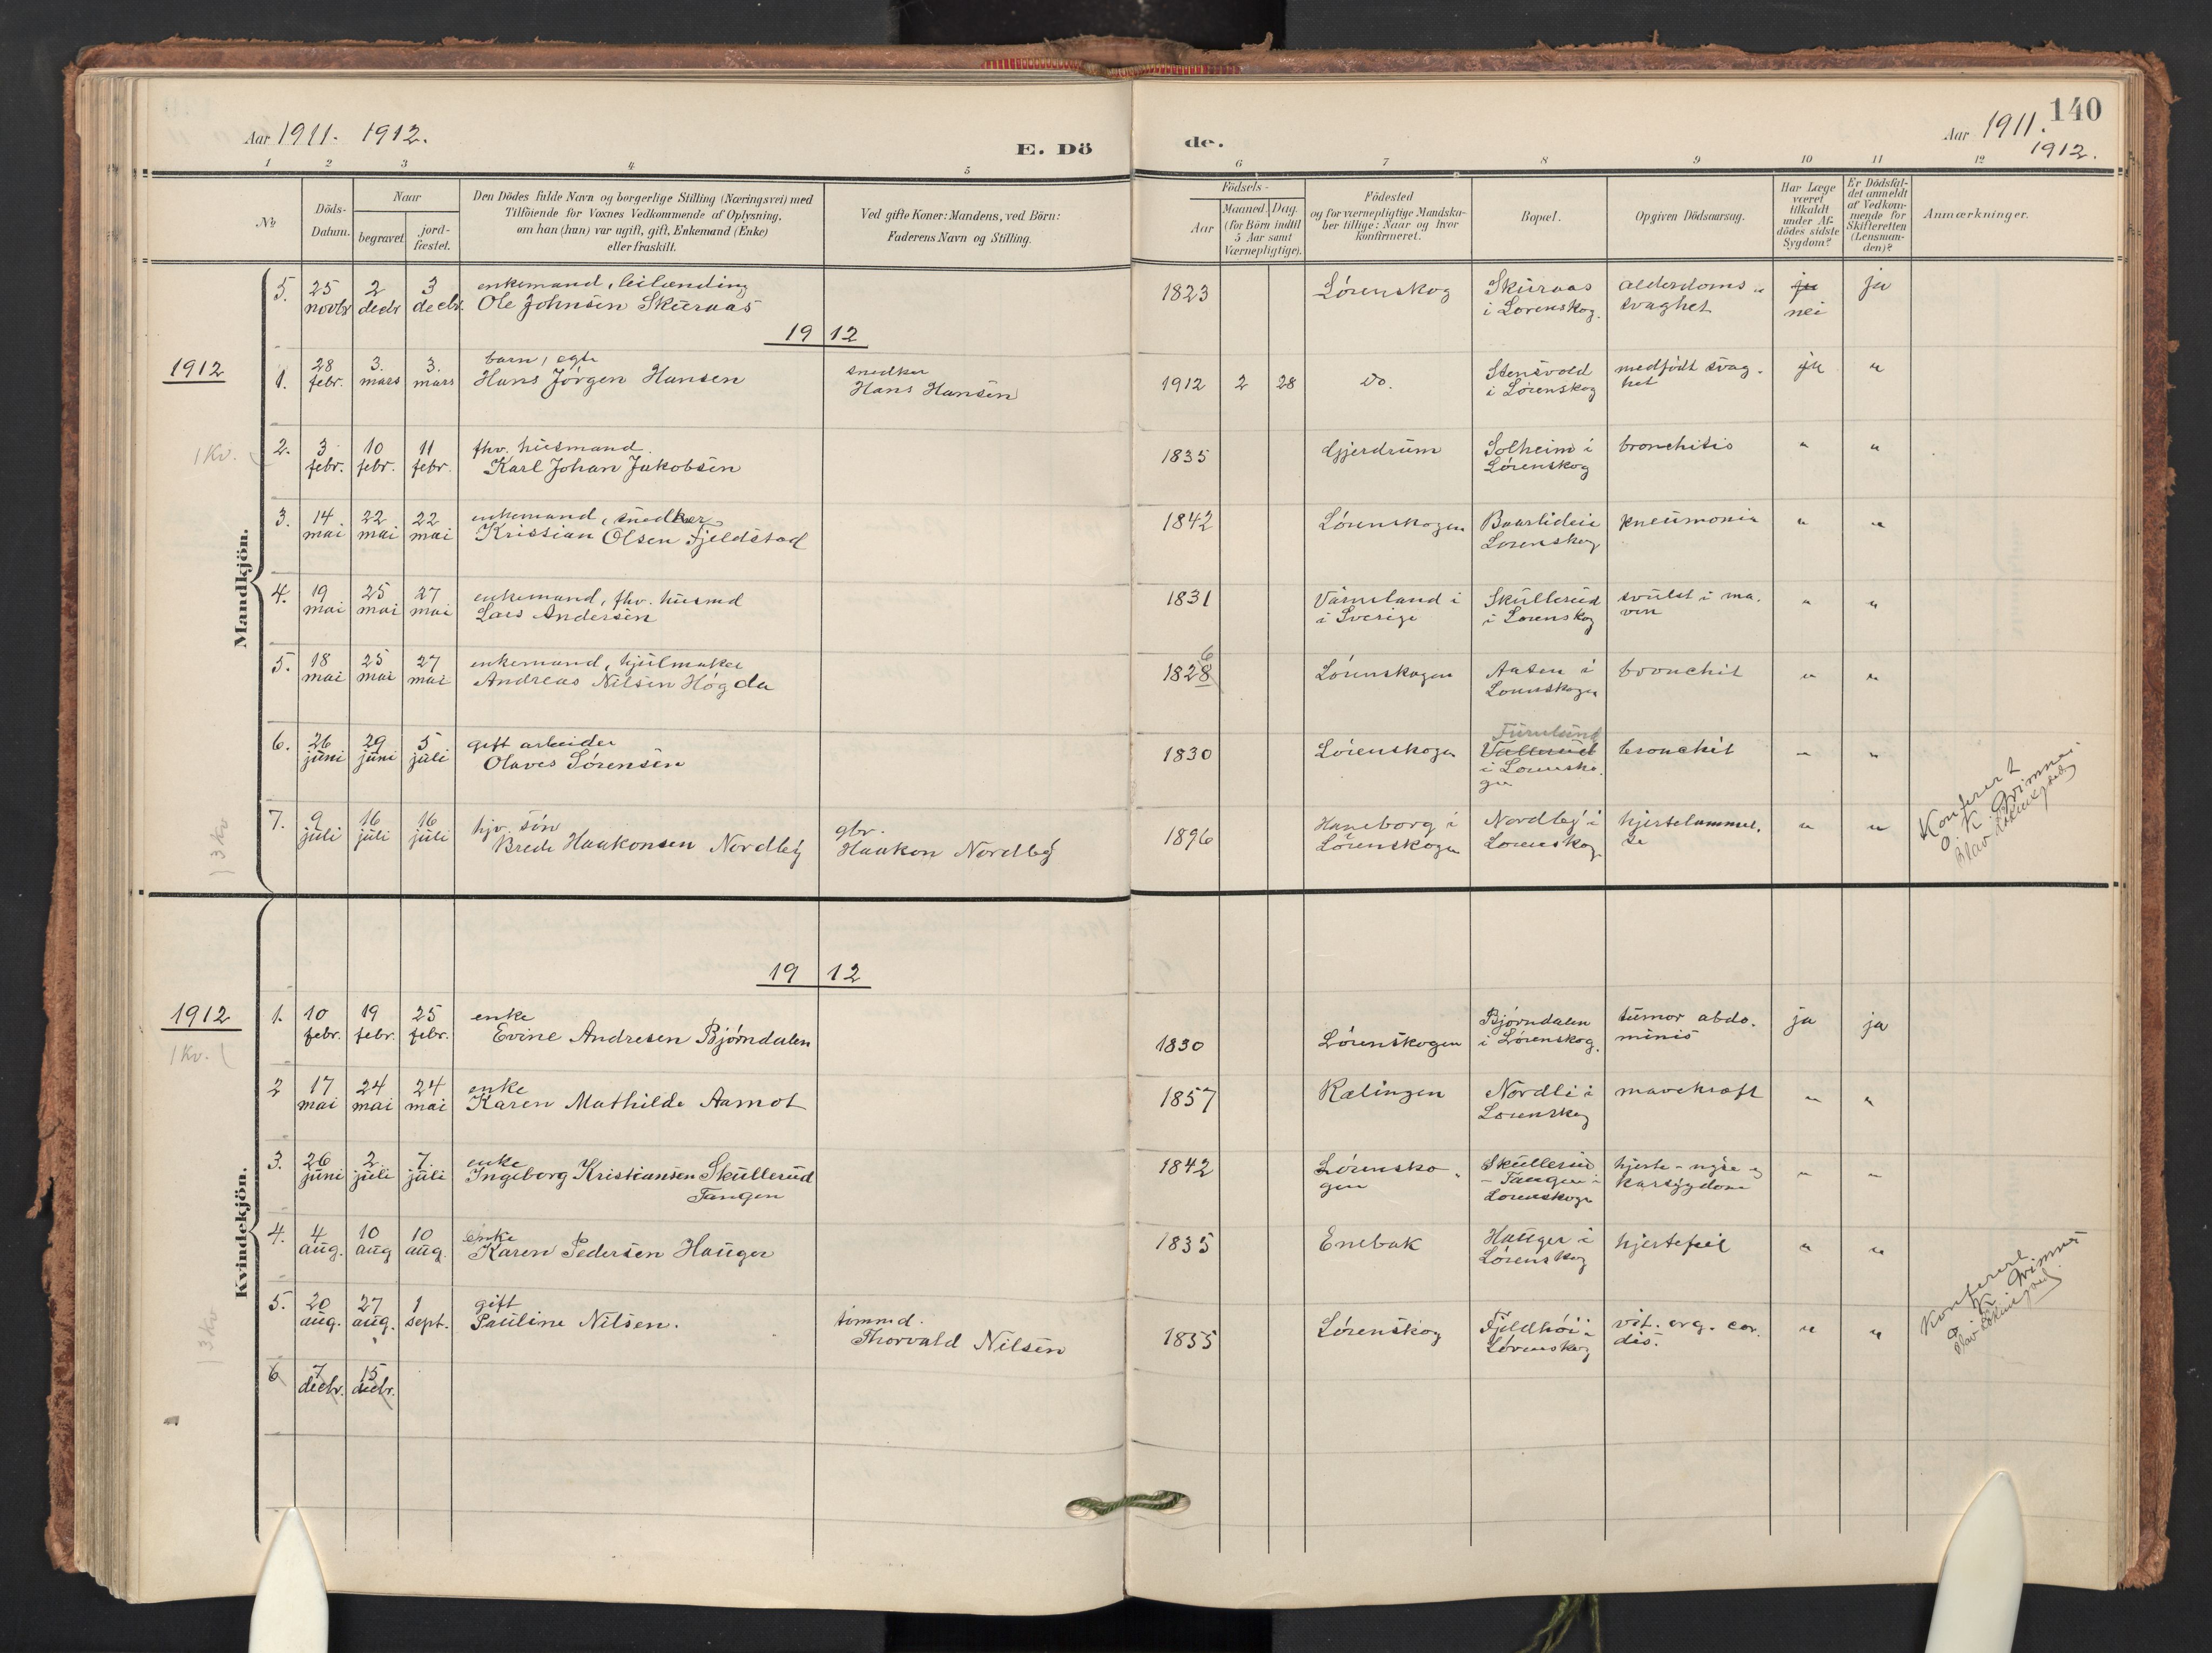 140
Aar 1911. 1912.
E. Döde.
Aar 1911.
1912.
1 2 3 4 5 6 7 8 9 10 11 12
№
Döds-Datum.
Naar
begravet.
jord-fæstet.
Den Dödes fulde Navn og borgerlige Stilling (Næringsvei) med
Tilföiende for Voxnes Vedkommende af Oplysning,
om han (hun) var ugift, gift, Enkemand (Enke)
eller fraskilt.
Ved gifte Koner: Mandens, ved Börn:
Faderens Navn og Stilling.
Födsels-
Aar
Maaned. Dag.
(for Börn indtil
5 Aar samt
Værnepligtige).
Födested
og for værnepligtige Mandska-
ber tillige: Naar og hvor
konfirmeret.
Bopæl.
Opgiven Dödsaarsag.
Har Læge
været
tilkaldt
under Af-
dödes sidste
Sygdom?
Er Dödsfal-
det anmeldt
af Vedkom-
mende for
Skifteretten
(Lensman-
den)?
Anmærkninger.
Mandkjön.
5. 25 novbr 2 decbr 3 decbr. enkemand, leilænding
Ole Johnsen Skuraas
1823 Lørenskog Skuraas i Lørenskog. alderdoms-svaghet ja nei ja
19 12
1912
1. 28 febr. 3. mars 3. mars barn, egte
Hans Jørgen Hansen
snedker
Hans Hansen
1912 2 28 do. Stensvold i Lørenskog medfødt svag-het ja "
1 Kv.
2. 3 febr. 10 febr. 11 febr. fhv. husmand.
Karl Johan Jakobsen
1835 Gjerdrum Solheim i Lørenskog bronchitis " "
3. 14 mai 22 mai 22 mai enkemand, snedker
Kristian Olsen Fjeldstad
1842 Lørenskogen Lørenskog pneumonia " "
4. 19 mai 25 mai 27 mai enkemand, fhv. husmd
Lars Andersen
1831 Värmeland i i Sverige Skullerud i Lørenskog svulst i ma-ven " "
5. 18 mai 25 mai 27 mai enkemand, hjulmaker
Andreas Nilsen Høgda
6
1828 Lørenskogen Aasen i Lørenskogen bronchit " "
6. 26 juni 29 juni 5 juli gift arbeider
Olaves Sørensen
1830 Lørenskogen Furulund i Lørensko-gen bronchit " "
7. 9 juli 16 juli 16 juli hjv. søn
Brede Haakonsen Nordby
gbr.
Haakon Nordby
1896 Haneborg i Lørenskogen Nordby i Lørenskog hjertelammel-se " "
3 Kv
Konferert
O. K. Grimnæs
Kvindekjön.
19 12
1912
1 Kv.
1. 10 febr. 19 febr. 25 febr. enke
Evine Andresen Bjørndalen
1830 Lørenskogen Bjørndalen i Lørenskog. tumor abdo-minis ja ja
2 17 mai 24 mai 24 mai enke
Karen Mathilde Aamot
1857 Rælingen Nordli i Lørenskog mavekræft " "
3. 26 juni 2 juli 7. juli enke
Ingeborg Kristiansen Skullerud
Tangen
1842 Lørensko-gen Skullerud-Tangen i Lørenskogen hjerte- nyre- og karsygdom " "
4. 4 aug. 10 aug 10 aug. enke
Karen Pedersen Hauger
1835 Enebak Hauger i Lørenskog hjertefeil " "
5. 20 aug. 27 aug. 1 sept. gift
Pauline Nilsen.
tømmd.
Thorvald Nilsen
1855 Lørenskog Fjeldhøi i Lørenskog vit. org. cor-dis. " "
3 Kv
Konferert
O. K. Grimnæs
6 7 decbr. 15 decbr.